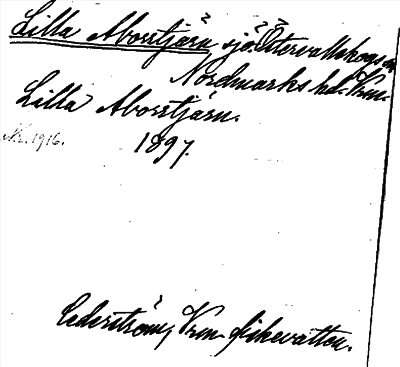 Lilla Aborrtjärn sjö Östervallskogs sn
Nordmarks hd. Vrm.
Lilla Aborrtjärn.
N.L. 1916.
1897.
Cederström, Vrm. fiskevatten.